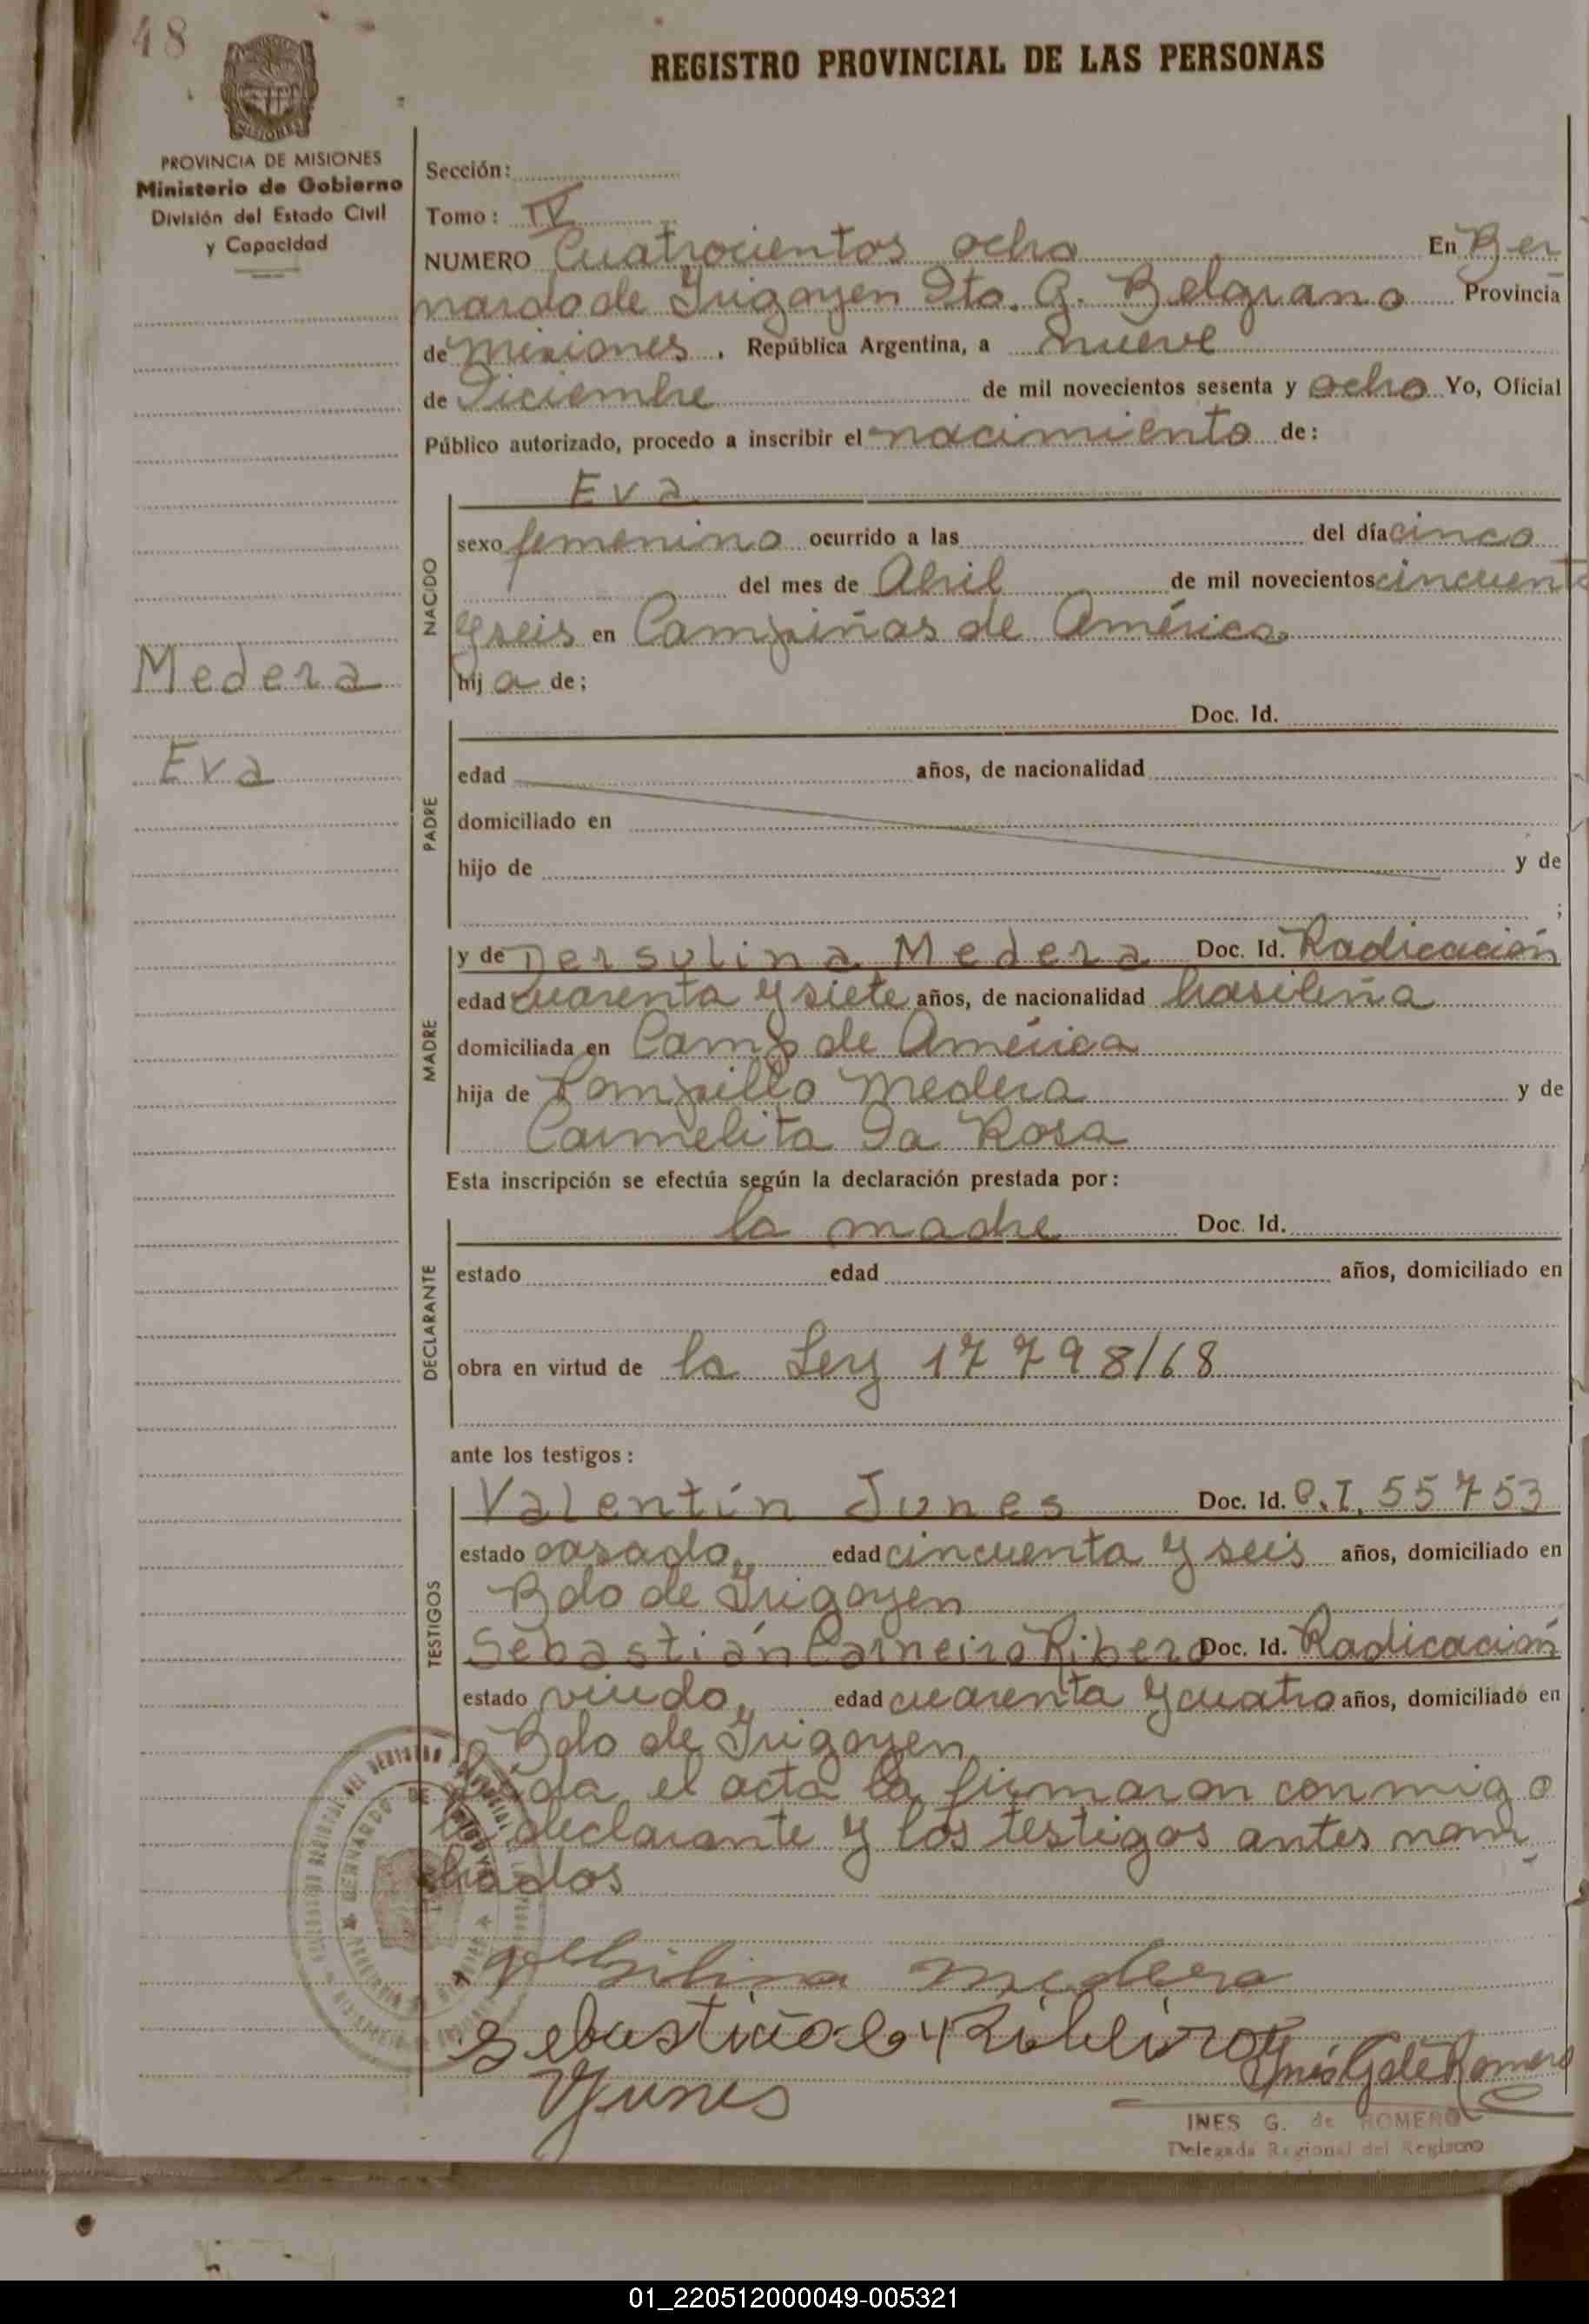 48
REGISTRO PROVINCIAL DE LAS PERSONAS
MISIONES
PROVINCIA DE MISIONES
Ministerio de Gobierno
División del Estado Civil
y Capacidad
Sección:
Tomo: IV
NUMERO Cuatrocientos ocho En Ber
nardo de Irigoyen Dto. G. Belgrano Provincia
de Misiones. República Argentina, a nueve
de Diciembre de mil novecientos sesenta y ocho Yo, Oficial
Público autorizado, procedo a inscribir el nacimiento de:
NACIDO
Eva
sexo femenino ocurrido a las del día cinco
del mes de Abril de mil novecientos cincuenta
y seis en Campiñas de América
hija de;
Medera
Eva
PADRE
Doc. Id.
edad años, de nacionalidad
domiciliado en
hijo de y de
;
MADRE
y de Dersulina Medera Doc. Id. Radicación
edad cuarenta y siete años, de nacionalidad brasileña
domiciliada en Camp de América
hija de Pompillo Medera y de
Carmelita Da Rosa
Esta inscripción se efectúa según la declaración prestada por:
DECLARANTE
la madre Doc. Id.
estado edad años, domiciliado en
obra en virtud de la Ley 17798/68
ante los testigos:
TESTIGOS
Valentín Junes Doc. Id. C.I. 55753
estado casado, edad cincuenta y seis años, domiciliado en
Bdo de Irigoyen
Sebastián Carneiro Ribero Doc. Id. Radicación
estado viudo, edad cuarenta y cuatro años, domiciliado en
Bdo de Irigoyen
el acta la firmaron conmigo
la declarante y los testigos antes nom
brados
Medera
Ribeiro
Yunes
Inés G de Romero
INES G. de ROMERO
Delegada Regional del Registro
01_220512000049-005321